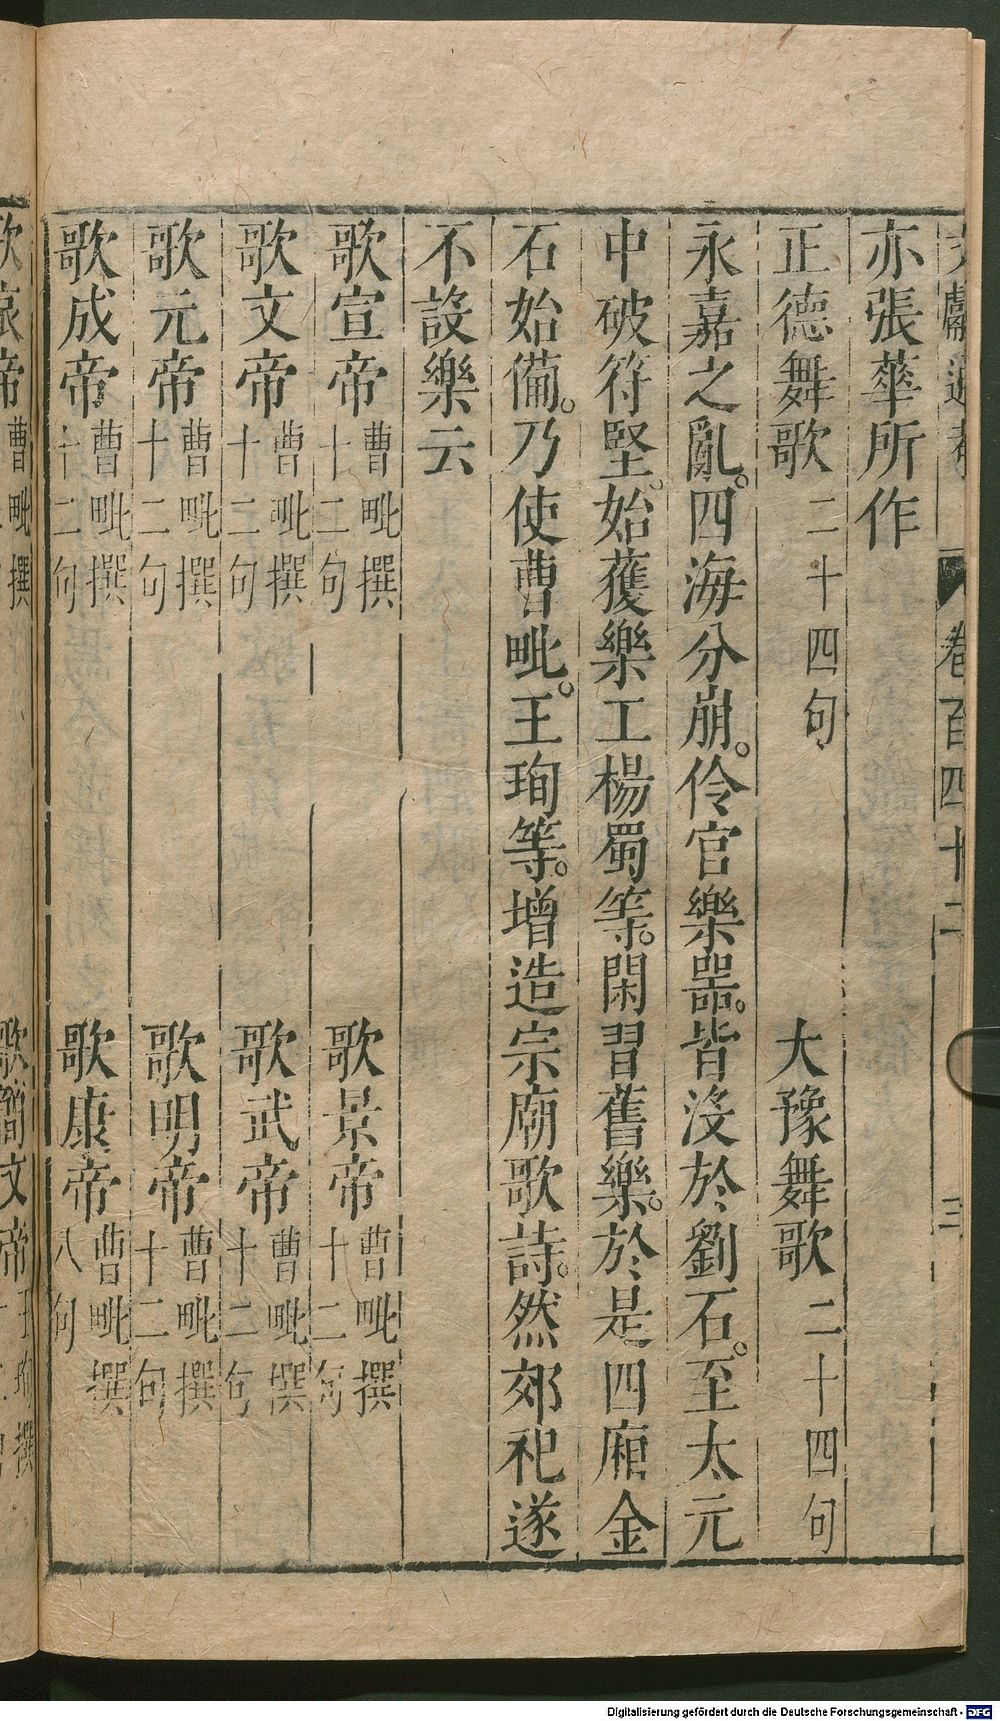 文獻通考 卷百四十二 三
亦張華所作
正德舞歌 二十四句 大豫舞歌 二十四句
永嘉之亂。四海分崩。伶官樂器。皆沒於劉石。至太元
中破符堅。始獲樂工楊蜀等。閑習舊樂。於是四廂金
石始備。乃使曹毗。王珣等。增造宗廟歌詩。然郊祀遂
不設樂云
歌宣帝 曹毗撰 十二句 歌景帝 曹毗撰 十二句
歌文帝 曹毗撰 十二句 歌武帝 曹毗撰 十二句
歌元帝 曹毗撰 十二句 歌明帝 曹毗撰 十二句
歌成帝 曹毗撰 十二句 歌康帝 曹毗撰 八句
歌哀帝 曹毗撰 歌簡文帝 王珣撰
Digitalisierung gefördert durch die Deutsche Forschungsgemeinschaft - DFG